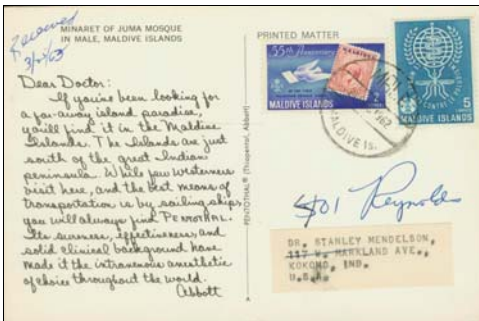 Received
3/27/63
MINARET OF JUMA MOSQUE
IN MALE, MALDIVE ISLANDS
Dear Doctor:
If you've been looking for
a far-away island paradise,
you'll find it in the Maldive
Islands. The Islands are just
south of the great Indian
peninsula. While few westerners
visit here, and the best means of
transportation is by sailing ships
you will always find PENTOTHAL.
Its sureness, effectiveness, and
solid clinical background have
made it the intravenous anesthetic
of choice throughout the world.
Abbott
PENTOTHAL® (Thiopental, Abbott)
PRINTED MATTER
55th Anniversary
MALDIVE ISLANDS
2
MALDIVE ISLANDS
5
MALDIVE IS.
401 Reynolds
DR. STANLEY MENDELSON,
117 W. MARKLAND AVE.,
KOKOMO, IND.
U.S.A.